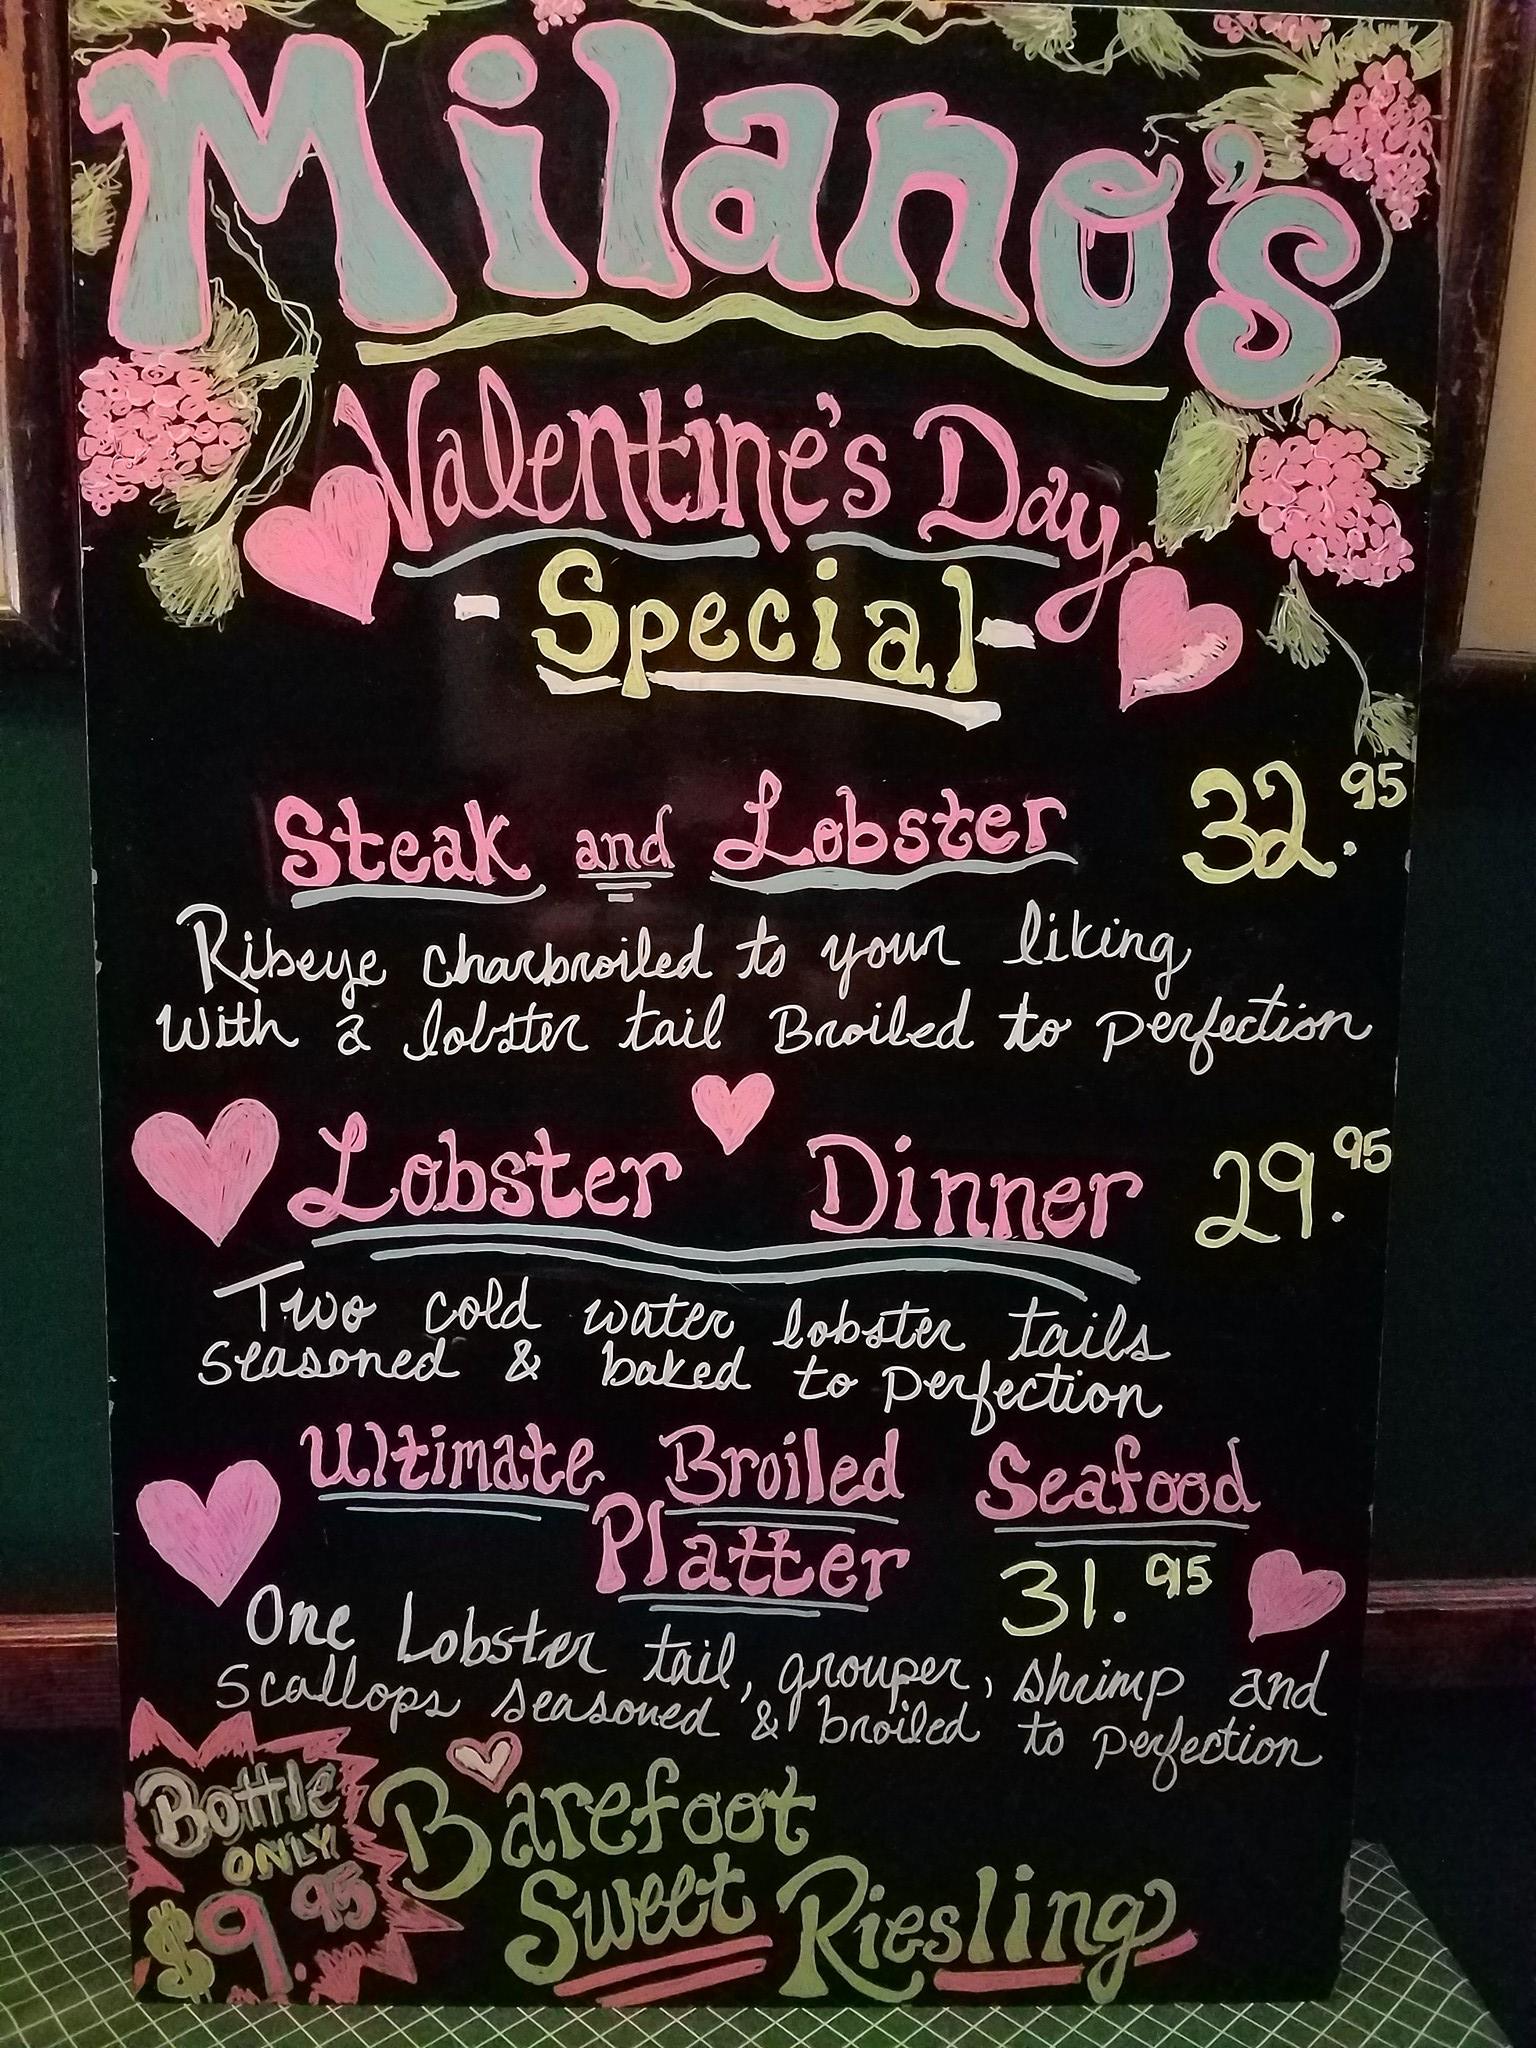 Milano's
Valentine's Day
- Special -
Steak and Lobster 32.95
Ribeye charbroiled to your liking
With a lobster tail Broiled to perfection
Lobster Dinner 29.95
Two cold water lobster tails
seasoned & baked to perfection
Ultimate Broiled Seafood
Platter 31.95
One Lobster tail, grouper, shrimp and
Scallops seasoned & broiled to perfection
Bottle
ONLY
$9.95
Barefoot
Sweet Riesling